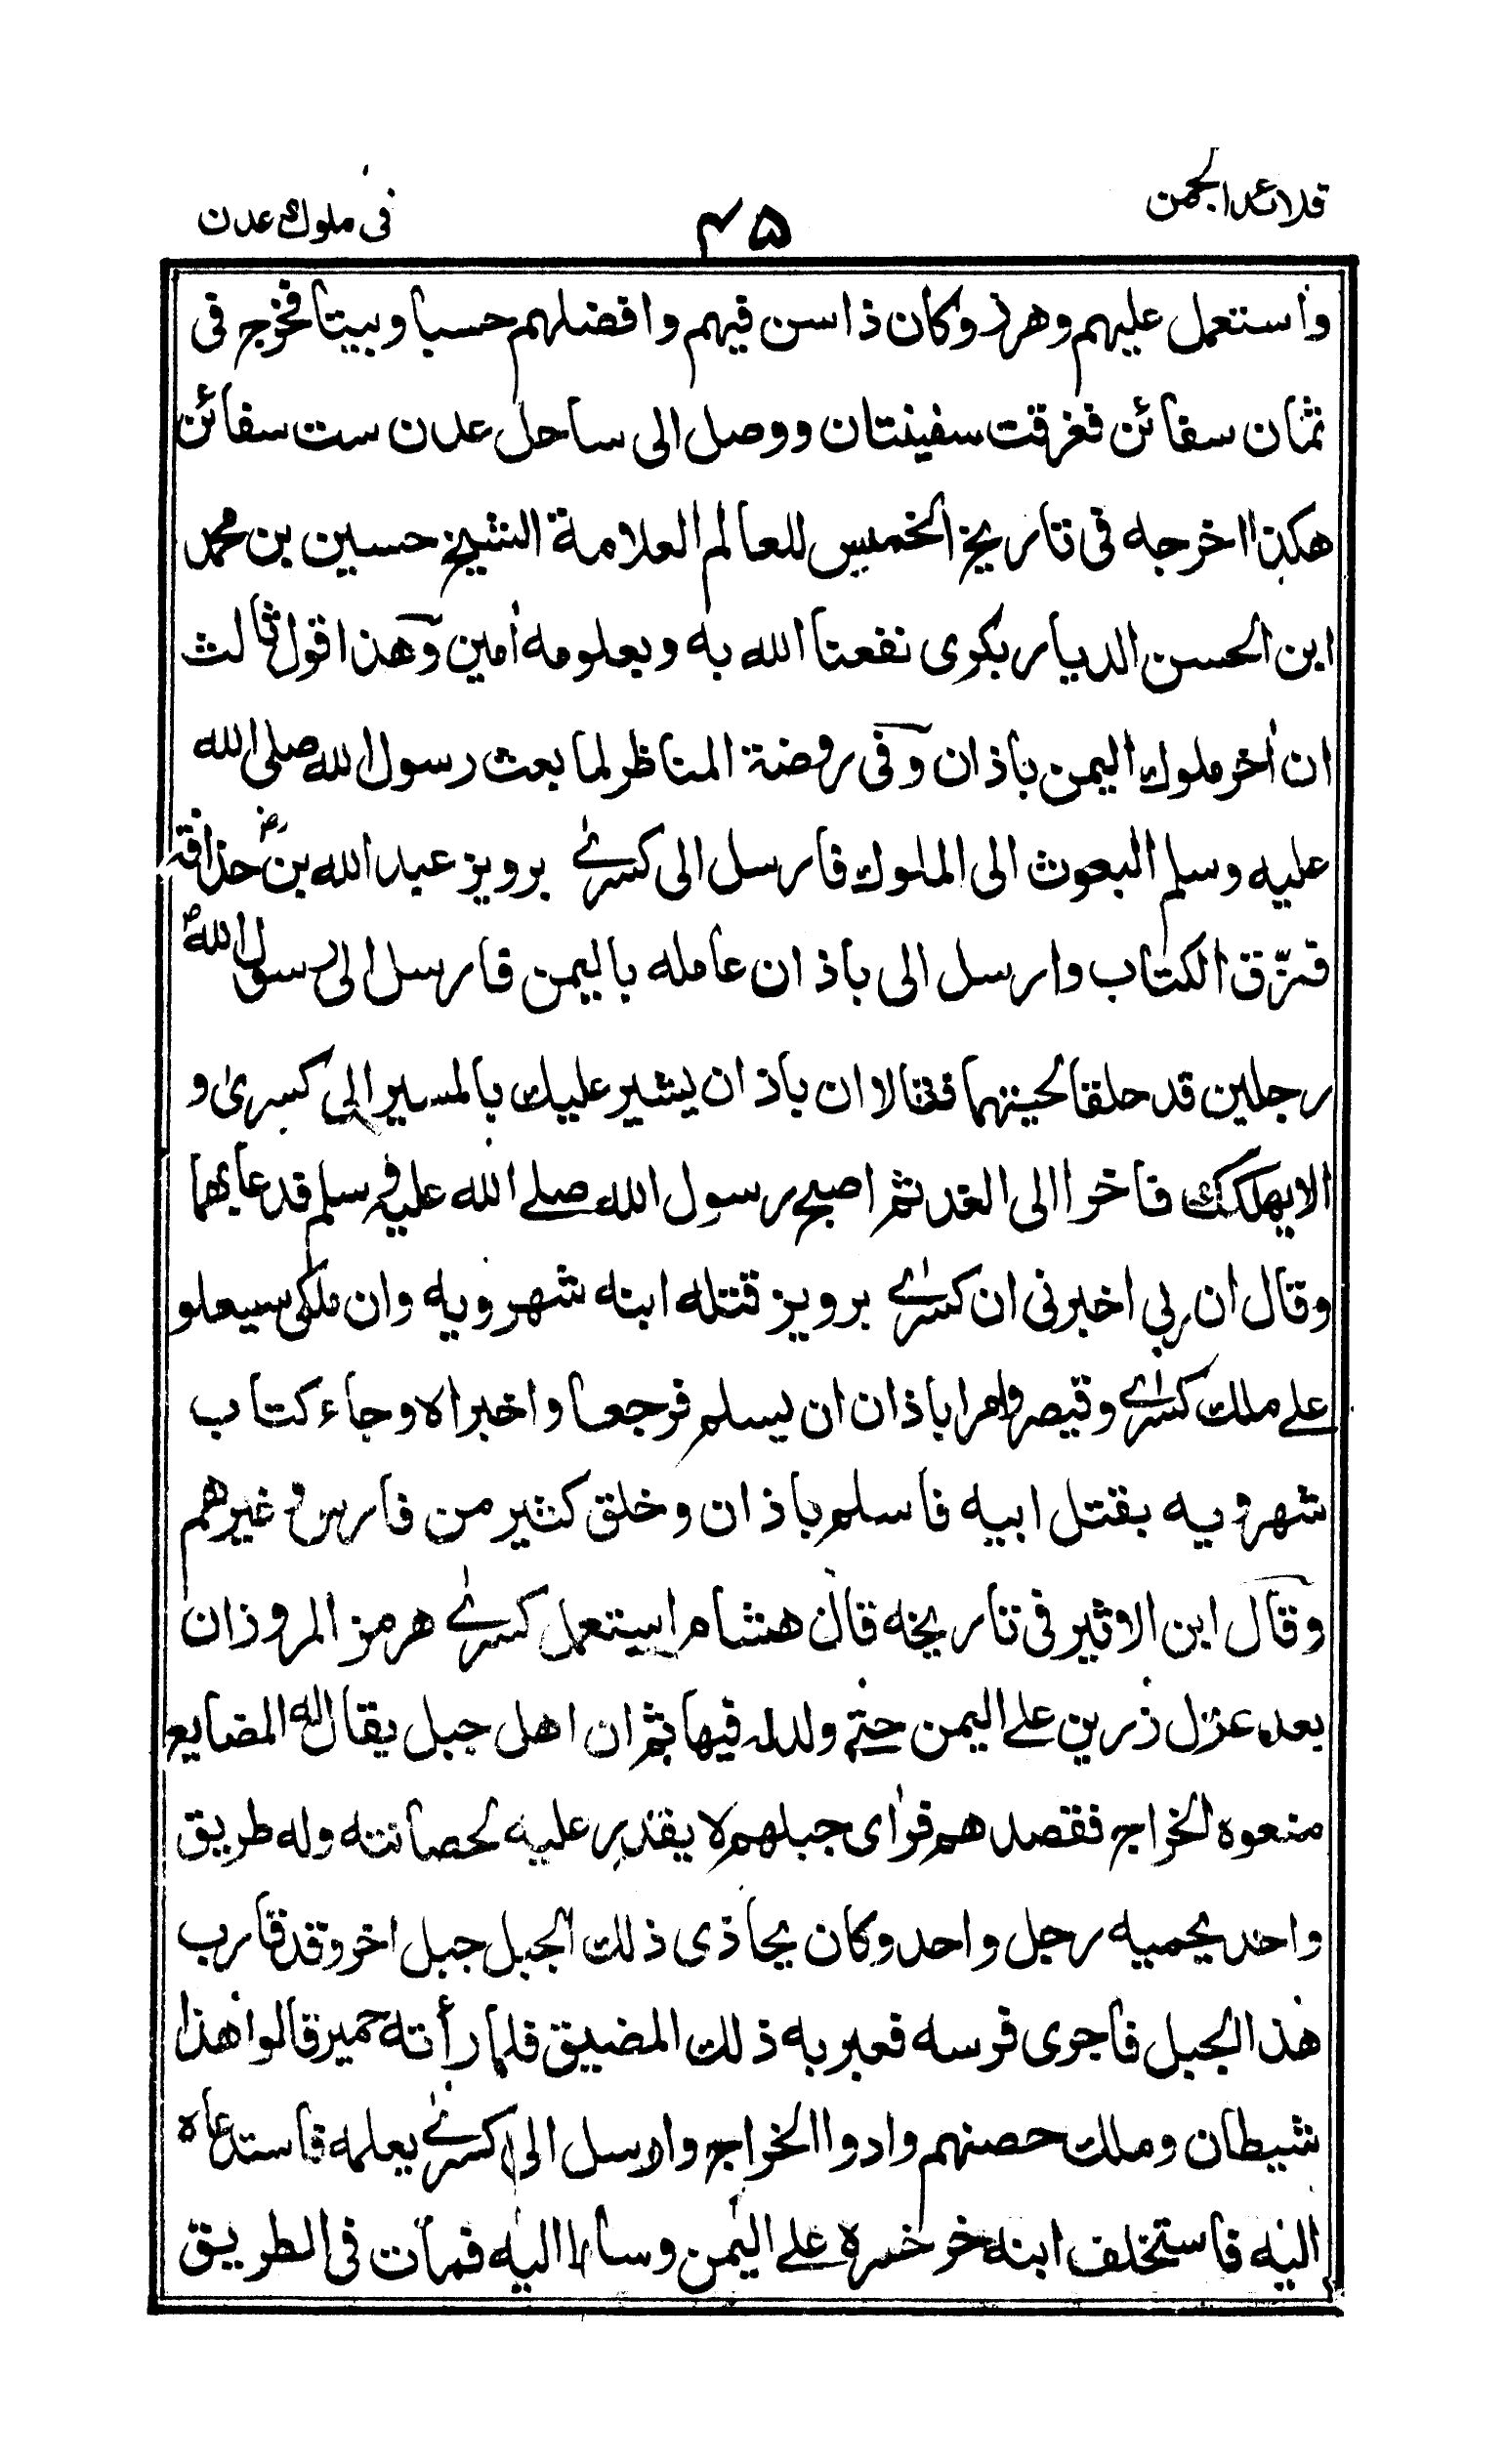 قلائد الجمن
٤٥
فى ملوك عدن
واستعمل عليهم وهرز وكان ذا سن فيهم وافضلهم حسبا وبيتا فخرج فى
ثمان سفائن فغرقت سفينتان ووصل الى ساحل عدن ست سفائن
هكذا اخرجه فى تاريخ الخميس للعالم العلامة الشيخ حسين بن محمد
ابن الحسن الديار بكرى نفعنا الله به وبعلومه أمين وهذا قول ثالث
ان أخر ملوك اليمن باذان وفى روضة المناظر لما بعث رسول الله صلى الله
عليه وسلم البعوث الى الملوك فارسل الى كسرٰے برويز عبد الله بن حذافة رض
فمزّق الكتاب وارسل الى باذان عامله باليمن فارسل الى رسول الله ص
رجلين قد حلقا لحيتهما فقالا ان باذان يشير عليك بالمسير الى كسرىٰ و
الا يهلكك فاخرا الى الغد ثم اصبح رسول الله صلے الله عليه وسلم قد عا بهما
وقال ان ربي اخبرنى ان كسرٰے برويز قتله ابنه شهرويه وان ملكى سيعلو
علے ملك كسرٰے وقيصر وامرا باذان ان يسلم فرجعا واخبراه وجاء كتاب
شهرويه بقتل ابيه فاسلم باذان وخلق كثير من فارس وغيرهم
وقال ابن الاثير فى تاريخه قال هشام استعمل كسرٰے هرمز المروذان
بعد عزل زرين علے اليمن حتے ولد له فيها ثم ان اهل جبل يقال له المضايع
منعوه الخراج فقصدهم فرأى جبلهم لا يقدر عليه لحصانته وله طريق
واحد يحميه رجل واحد وكان يحاذى ذلك الجبل جبل اخر وقد قارب
هذا الجبل فاجرى فرسه فعبر به ذلك المضيق فلما رأته حمير قالوا هذا
شيطان وملك حصنهم وادوا الخراج وارسل الى كسرٰے يعلمه فاستدعاه
اليه فاستخلف ابنه خرخسره علے اليمن وسار اليه فمات فى الطريق